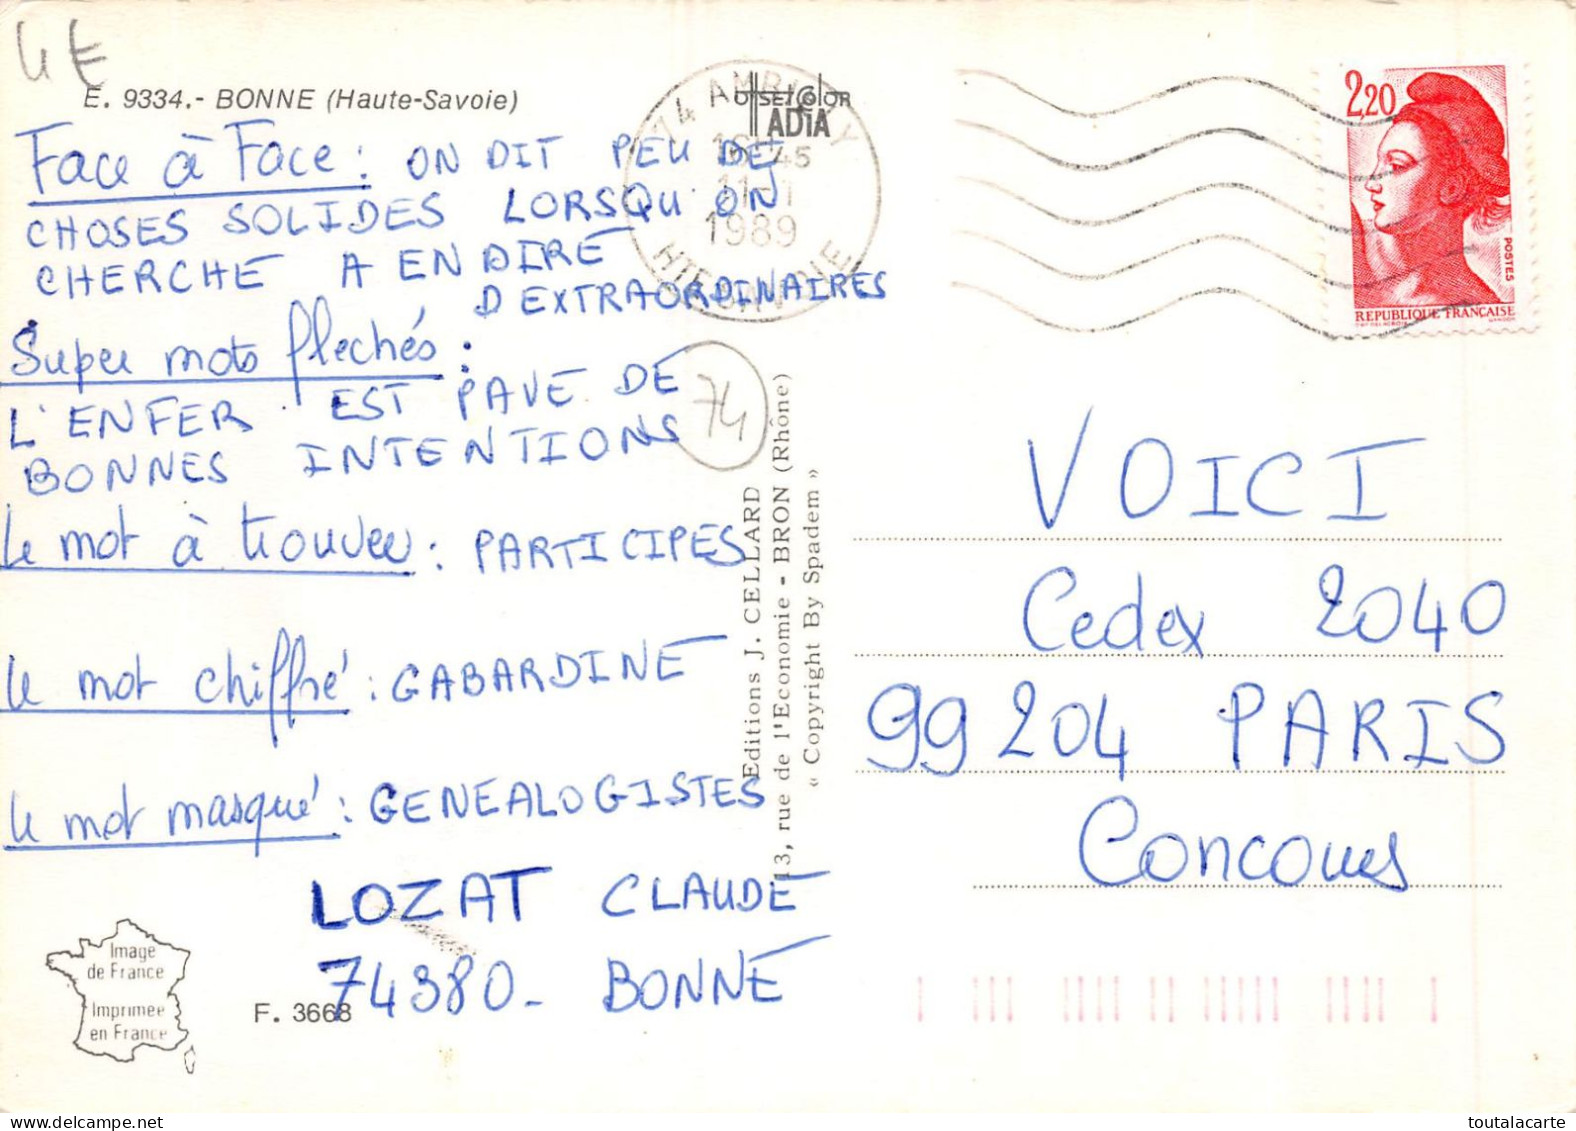 4 E
E. 9334.- BONNE (Haute-Savoie)
Face à Face : ON DIT PEU DE
CHOSES SOLIDES LORSQU'ON
CHERCHE A EN DIRE
D EXTRAORDINAIRES
Super mots flechés :
L'ENFER EST PAVE DE
BONNES INTENTIONS
Le mot à trouver : PARTICIPES
Le mot chiffré : GABARDINE
Le mot masqué : GENEALOGISTES
LOZAT CLAUDE
74380 - BONNE
Image
de France
Imprimée
en France
F. 3668
74
OFFSET COLOR
ADIA
74 AMBILLY
1989
HTE SAVOIE
Editions J. CELLARD
13, rue de l'Economie - BRON (Rhône)
« Copyright By Spadem »
2,20
POSTES
REPUBLIQUE FRANÇAISE
VOICI
Cedex 2040
99204 PARIS
Concours
toutalacarte